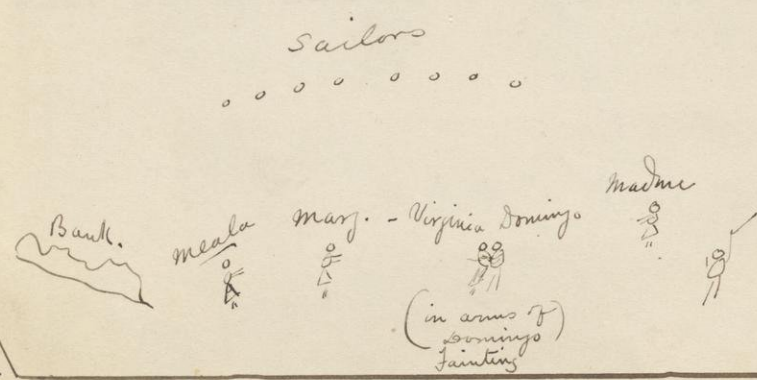 Sailors
Bank. Meala Marg. - Virginia Domingo Madme
(in arms of
Domingo
Fainting)